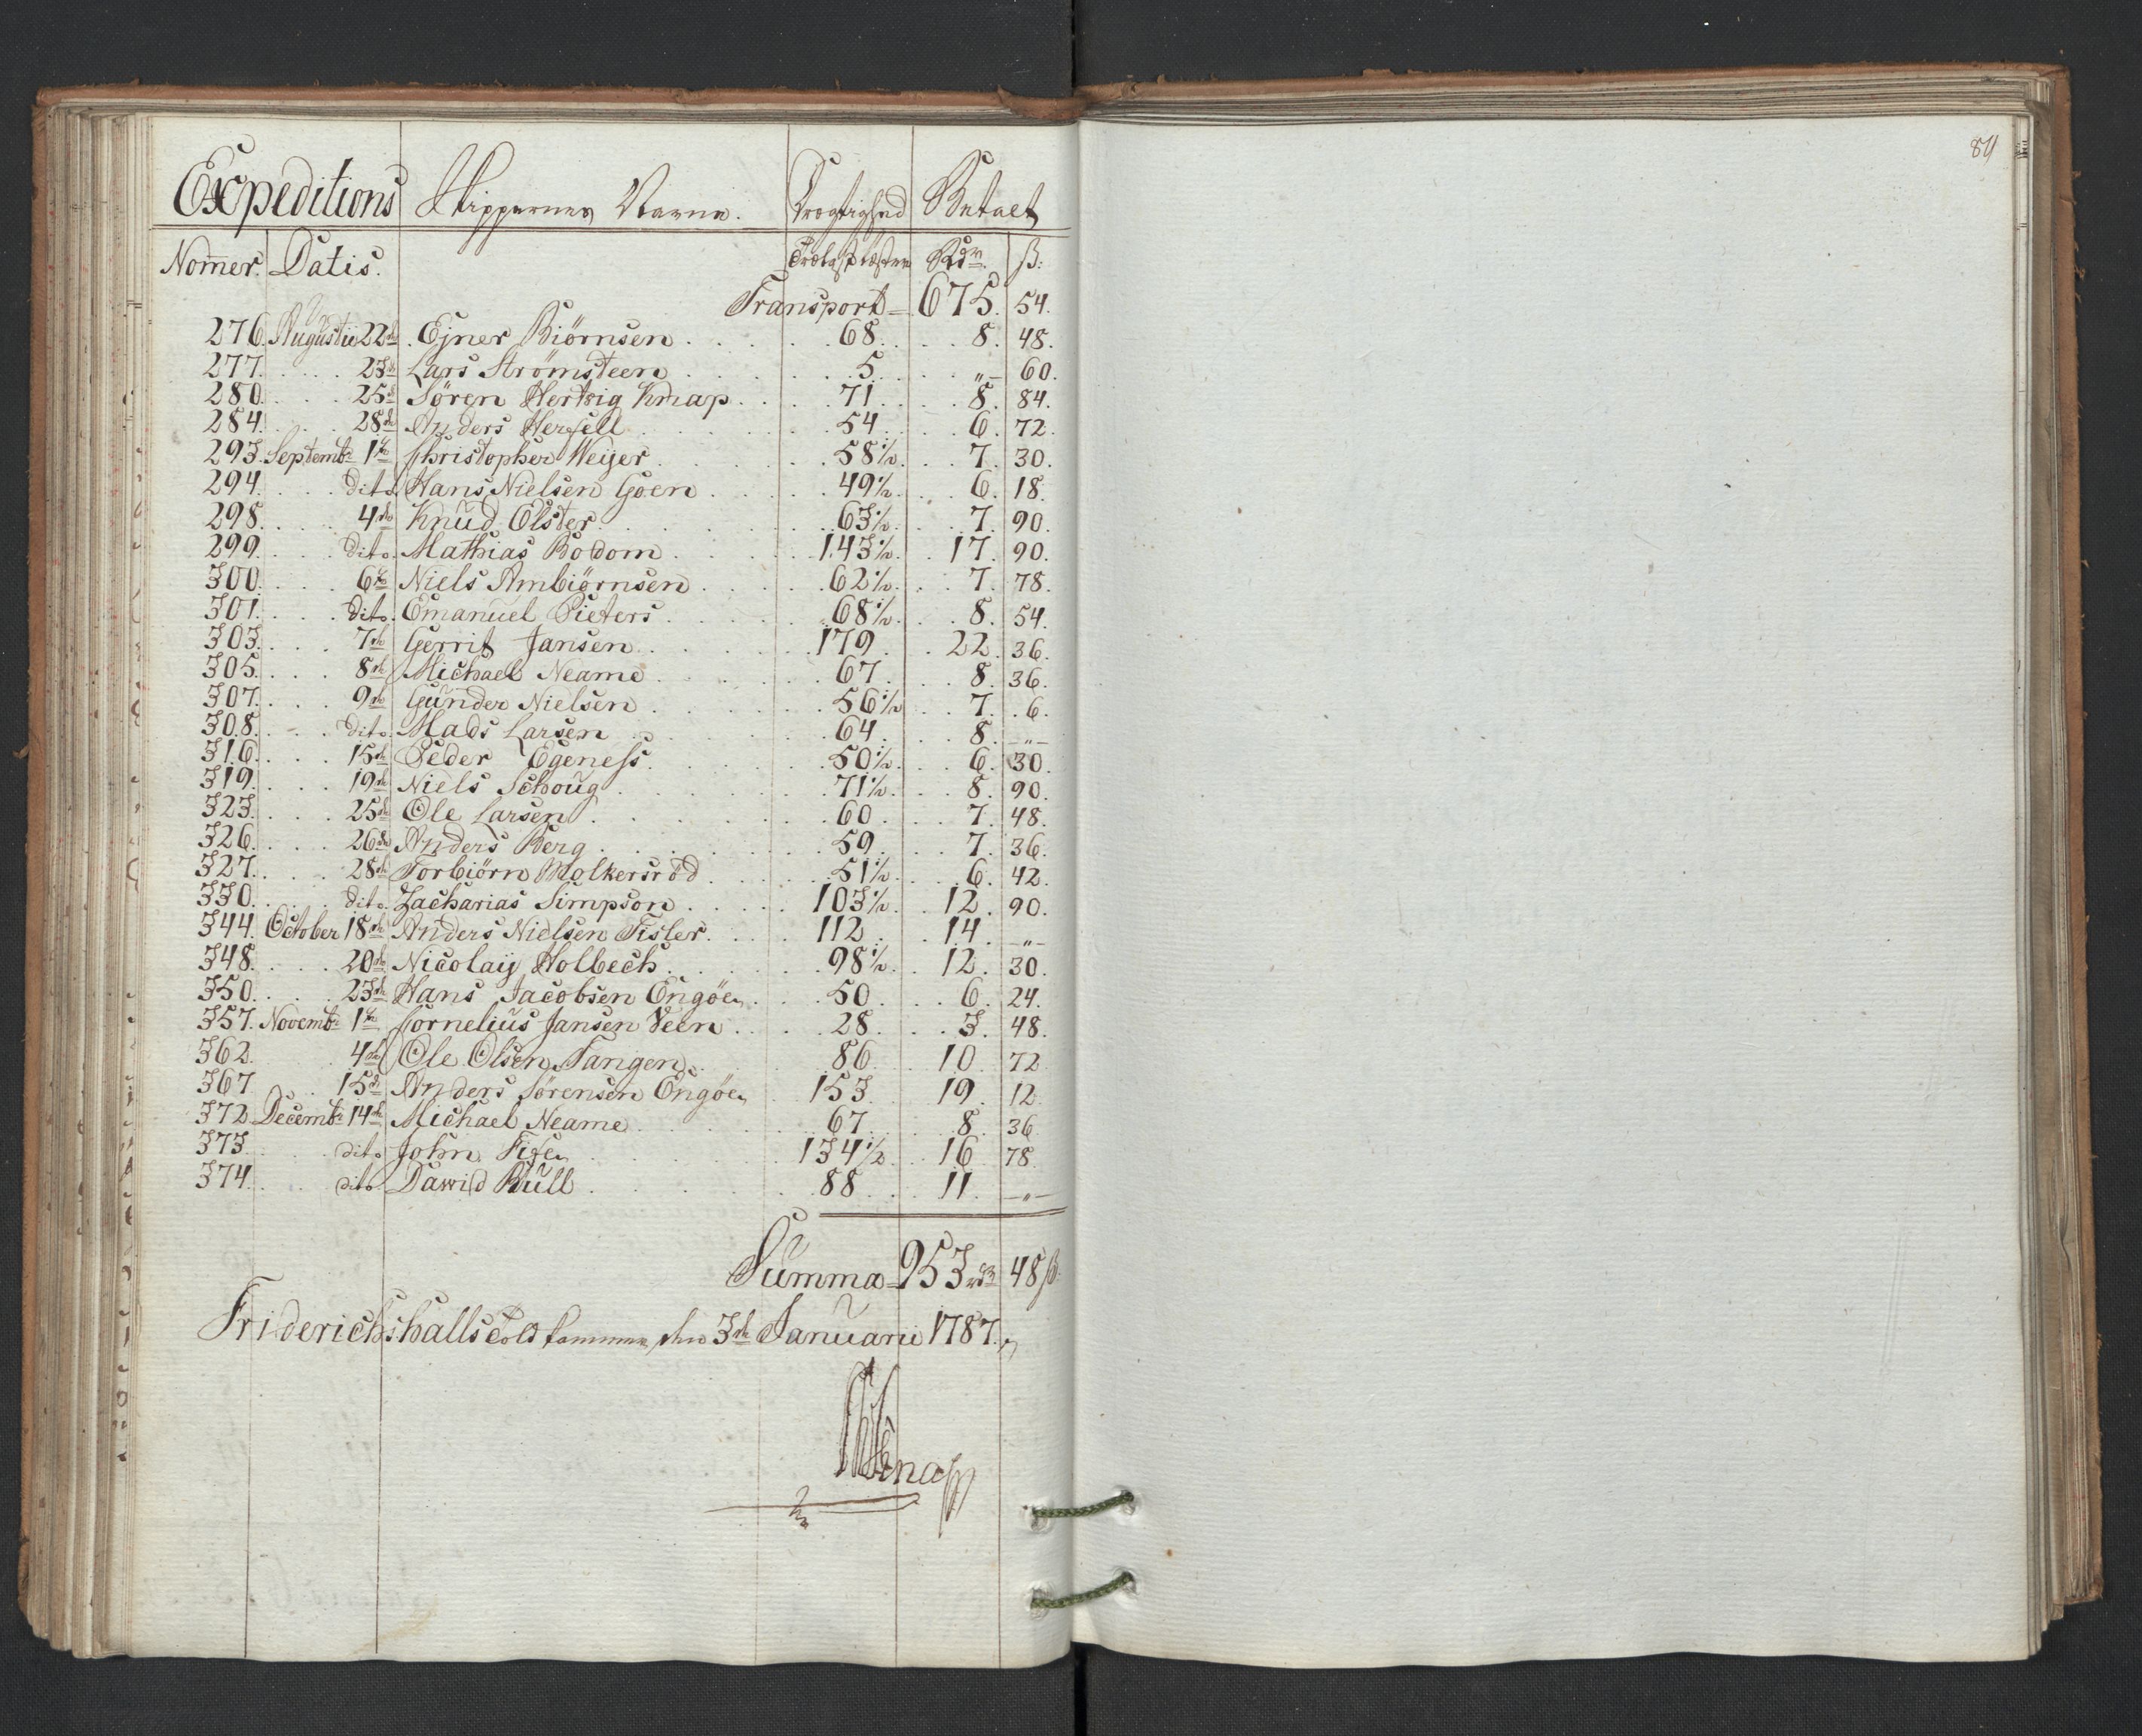 84
Expeditions Skippernes Navne. Drægtighed Betalt
Nom̄er. Datis. Trælast læster Rdr. ß:
Transport = 675. 54.
276. Augustii 22de. Ejner Biørnsen 68. 8. 48.
277. 23de Lars Strømsteen 5. „ 60.
280. 25de Søren Hertvig Knap 71. 8. 84.
284. 28de Anders Herfell 54. 6. 72.
293. Septembr 1te Christopher Weyer 58 1/2. 7. 30.
294. dito. Hans Nielsen Goen 49 1/2. 6. 18.
298. 4de Knud Olster 63 1/2. 7. 90.
299. dito. Mathias Bodom 143 1/2. 17. 90.
300. 6te Niels Ambiørnsen 62 1/2. 7. 78.
301. dito. Emanuel Pieters 68 1/2. 8. 54.
303. 7de Gerrit Jansen 179. 22. 36.
305. 8de Michael Neame 67. 8. 36.
307. 9de Gunder Nielsen 56 1/2. 7. 6.
308. dito. Mads Larsen 64. 8. „
316. 15de Peder Egeness 50 1/2. 6. 30.
319. 19de Niels Schoug 71 1/2. 8. 90.
323. 25de Ole Larsen 60. 7. 48.
326. 26de Anders Berg 59. 7. 36.
327. 28de Torbiørn Molkersrød 51 1/2. 6. 42.
330. dito. Zacharias Simpson 103 1/2. 12. 90.
344. October 18de Anders Nielsen Fisler. 112. 14. „
348. 20de Nicolaij Holbech 98 1/2. 12. 30.
350. 23de Hans Jacobsen Engöen 50. 6. 24.
357. Novembr 1te Cornelius Jansen Veen 28. 3. 48.
362. 4de Ole Olsen Tangen 86 10 72
367 15de Anders Sørensen Engöen 153. 19. 12.
372. Decembr 14de Michael Neame 67. 8. 36
373. dito John Fife 134 1/2. 16 78
374. dito. Dawid Bull 88. 11. „
Summa = 953 rdr 48 ß.
Friderichshalls Told kammer den 3de Januarii 1787.